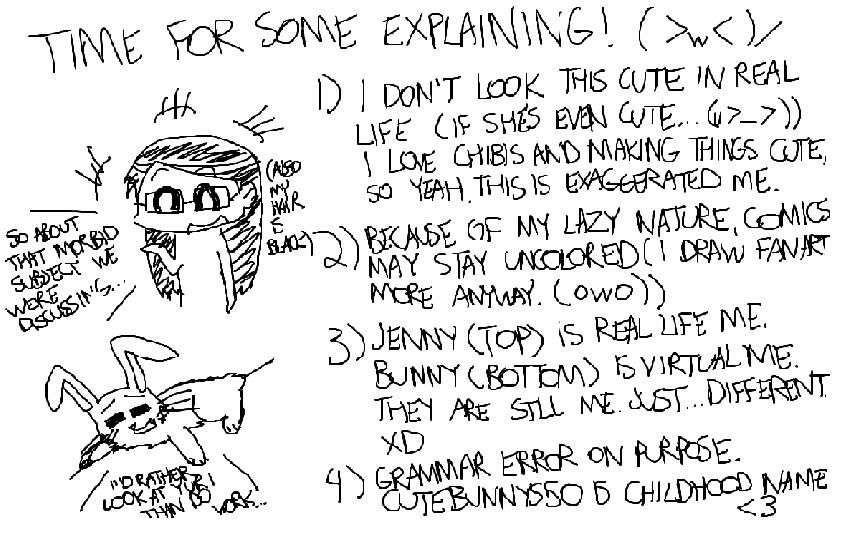 TIME FOR SOME EXPLAINING! (>w<)/
1) I DON'T LOOK THIS CUTE IN REAL
LIFE (IF SHE'S EVEN CUTE... (u>_>))
I LOVE CHIBIS AND MAKING THINGS CUTE,
SO YEAH. THIS IS EXAGGERATED ME.
(ALSO
MY
HAIR
IS
BLACK)
SO ABOUT
THAT MORBID
SUBJECT WE
WERE
DISCUSSING...
2) BECAUSE OF MY LAZY NATURE, COMICS
MAY STAY UNCOLORED (I DRAW FANART
MORE ANYWAY. (OWO))
3) JENNY (TOP) IS REAL LIFE ME.
BUNNY (BOTTOM) IS VIRTUAL ME.
THEY ARE STILL ME. JUST... DIFFERENT.
XD
4) GRAMMAR ERROR ON PURPOSE.
CUTEBUNNY550 IS CHILDHOOD NAME
<3
I'D RATHER
LOOK AT
THAN DO
WORK...